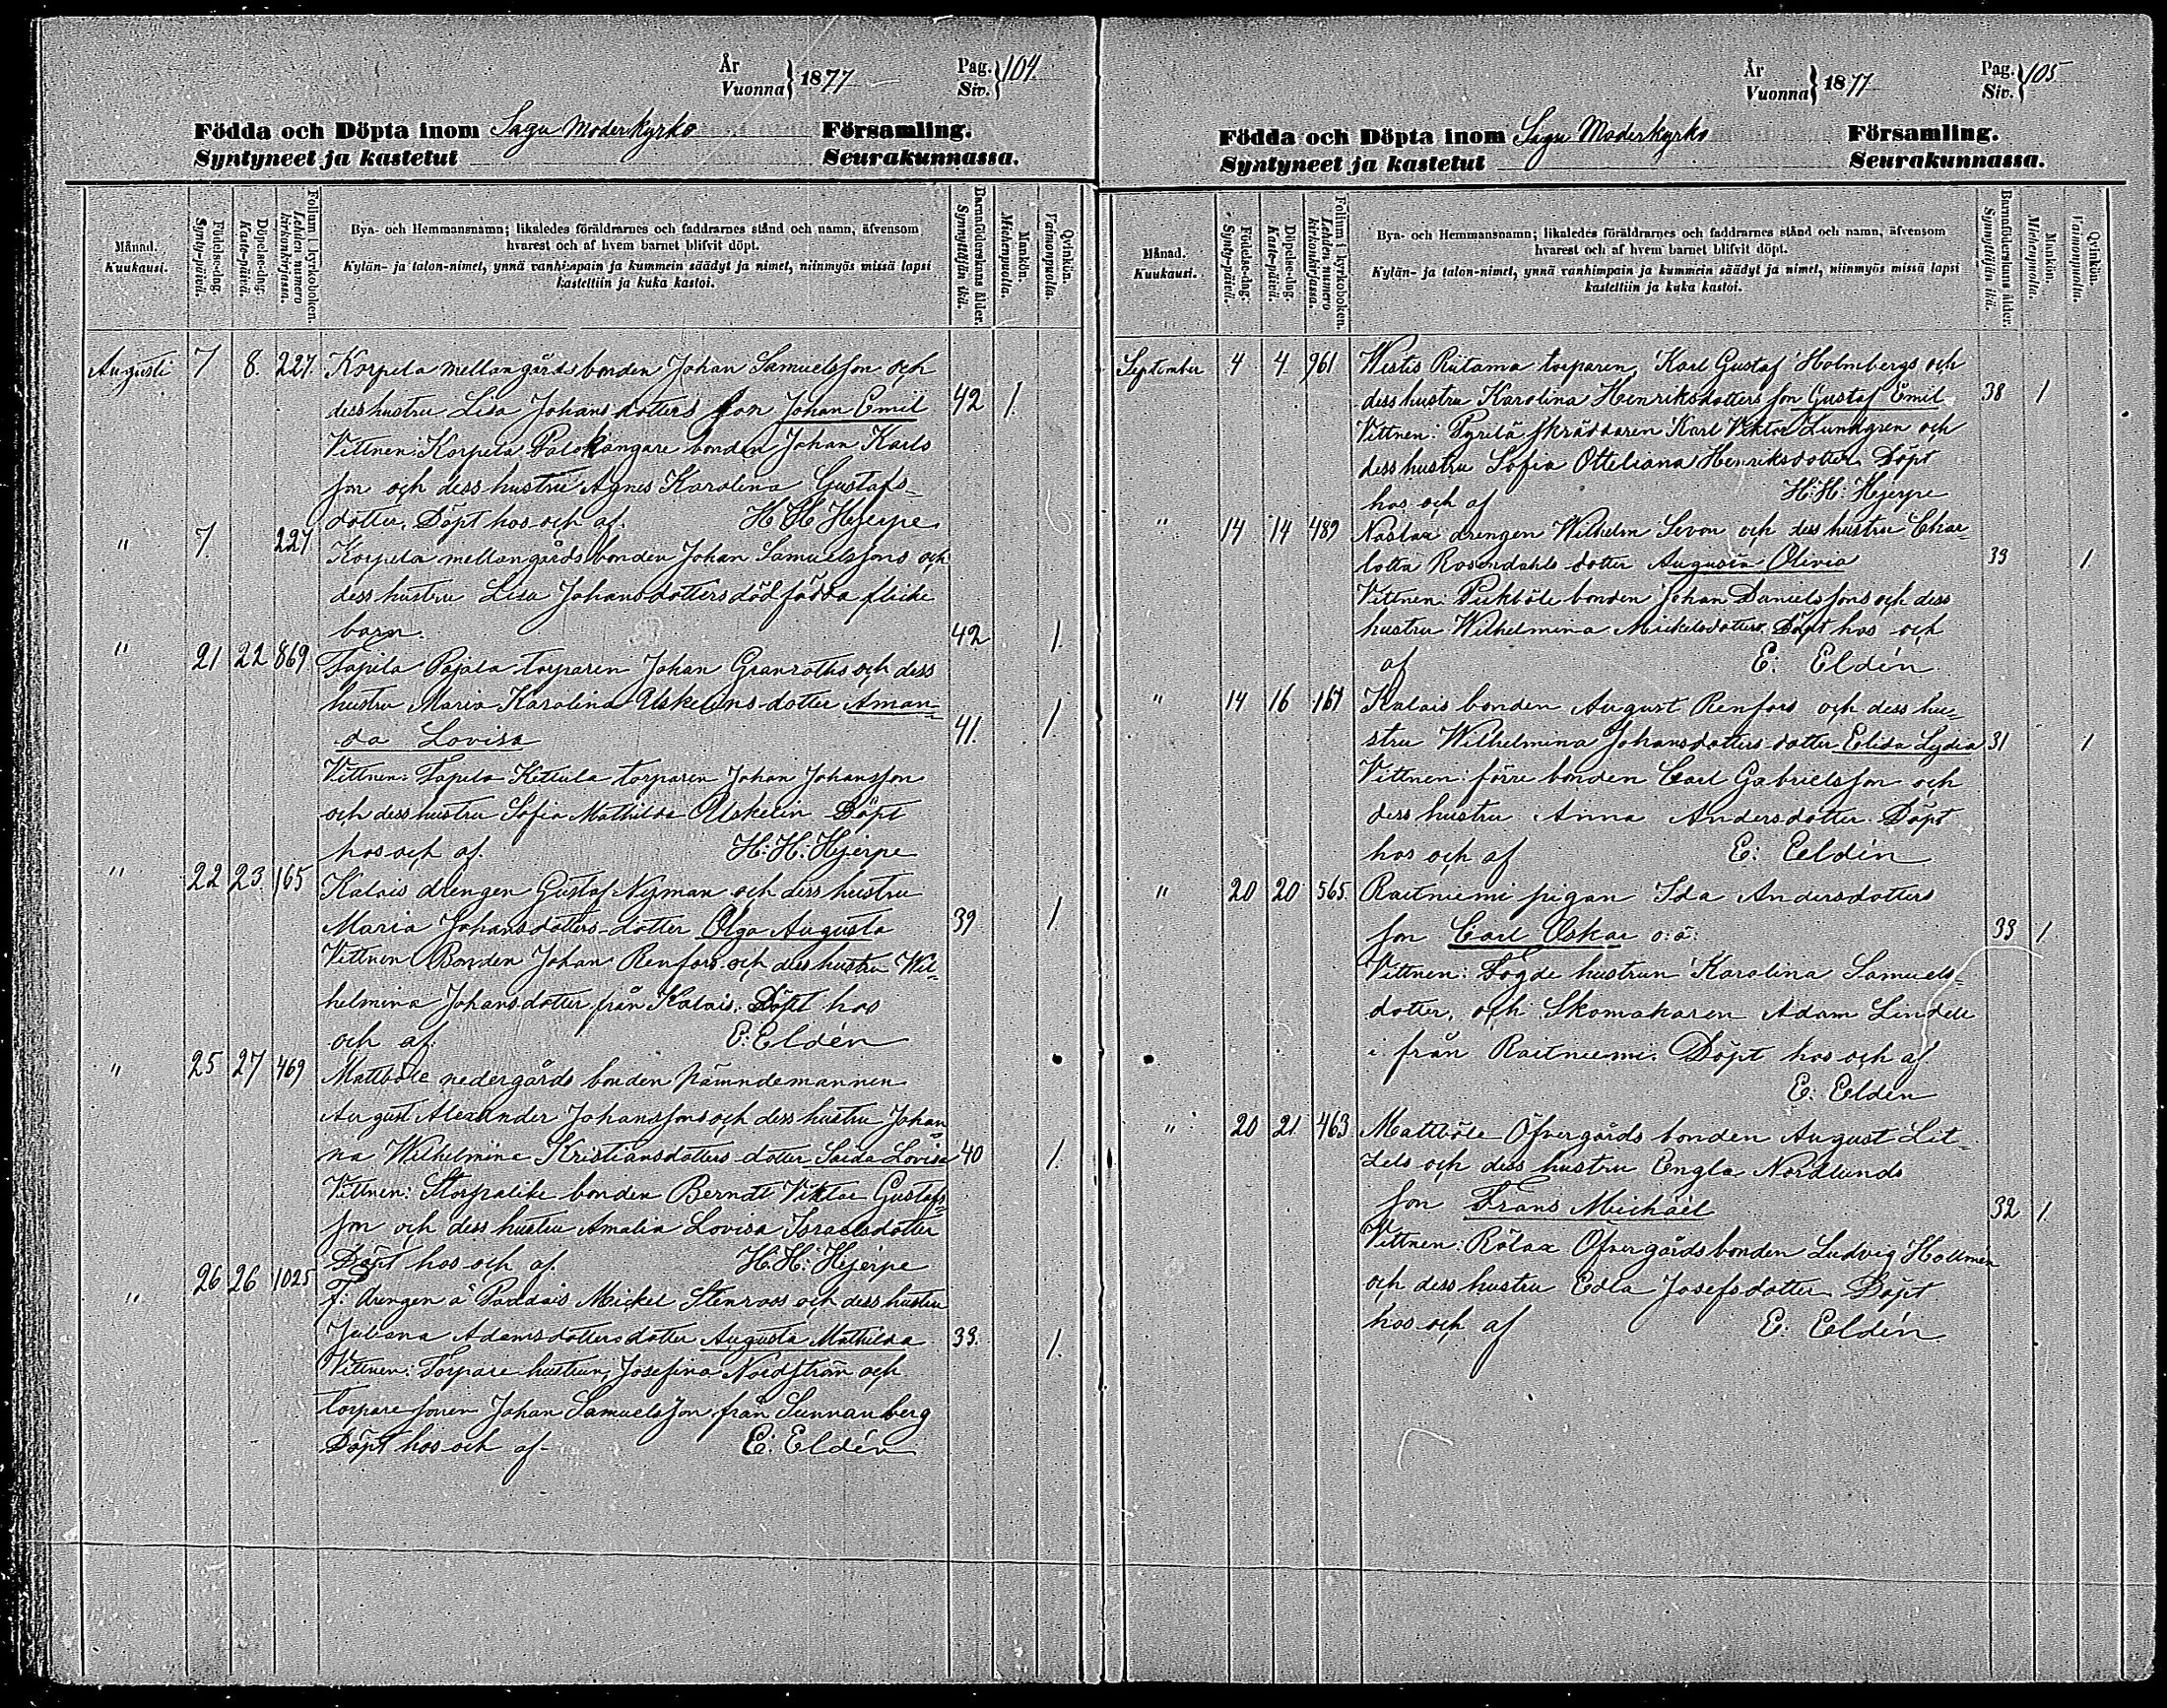 År
Vuonna } 1877
Pag.
Siv. } 104
Födda och Döpta inom Sagu Moderkyrko Församling.
Syntyneet ja kastetut Seurakunnassa.
Månad.
Kuukausi.
Födelse-dag.
Synty-päivä.
Döpelse-dag.
Kaste-päivä.
Folium i kyrkoboken.
Lehden numero kirkonkirjassa.
Bya- och Hemmansnamn; likaledes föräldrarnes och faddrarnes stånd och namn, äfvensom
hvarest och af hvem barnet blifvit döpt.
Kylän- ja talon-nimet, ynnä vanhimpain ja kummein säädyt ja nimet, niinmyös missä lapsi
kastettiin ja kuka kastoi.
Barnaföderskans ålder.
Synnyttäjän ikä.
Mankön.
Miehenpuolta.
Qvinkön.
Vaimonpuolta.
Augusti 7 8. 227. Korpela mellangårds bonden Johan Samuelsson och
dess hustru Lisa Johansdotters son Johan Emil 42 1.
Vittnen: Korpela Palokangare bonden Johan Karls
son och dess hustru Agnes Karolina Gustafs-
dotter, Döpt hos och af. H. H. Hjerpe
" 7. 227. Korpela mellangårds bonden Johan Samuelssons och
dess hustru Lisa Johansdotters dödfödda flicke
barn. 42 1.
" 21 22 869 Tapila Pajala torparen Johan Granroths och dess
hustru Maria Karolina Uskelins dotter Aman-
da Lovisa 41. 1.
Vittnen: Tapila Kettula torparen Johan Johansson
och dess hustru Sofia Mathilda Uskelin Döpt
hos och af. H: H: Hjerpe
" 22 23. 165 Kalais drengen Gustaf Nyman och dess hustru
Maria Johansdotters dotter Olga Augusta 39 1.
Vittnen Bonden Johan Renfors och dess hustru Wil-
helmina Johansdotter från Kalais. Döpt hos
och af. E: Eldén
" 25 27 469 Mattböle nedergårds bonden nämndemannen
August Alexander Johanssons och dess hustru Johan-
na Wilhelmina Kristiansdotters dotter Saida Lovisa 40 1.
Vittnen: Storpalike bonden Berndt Viktor Gustafs-
son och dess hustru Amalia Lovisa Israelsdotter
Döpt hos och af. H. H: Hjerpe
" 26 26 1025 F: drengen å Paddais Mickel Stenroos och dess hustru
Juliana Adamsdotters dotter Augusta Mathilda 33. 1.
Vittnen: Torpare hustrun, Josefina Nordström och
torpare sonen Johan Samuelsson från Sunnanberg
Döpt hos och af- E: Eldén
År
Vuonna } 1877
Pag.
Siv. } 105
Födda och Döpta inom Sagu Moderkyrko Församling.
Syntyneet ja kastetut Seurakunnassa.
Månad.
Kuukausi.
Födelse-dag.
Synty-päivä.
Döpelse-dag.
Kaste-päivä.
Folium i kyrkoboken.
Lehden numero kirkonkirjassa.
Bya- och Hemmansnamn; likaledes föräldrarnes och faddrarnes stånd och namn, äfvensom
hvarest och af hvem barnet blifvit döpt.
Kylän- ja talon-nimet, ynnä vanhimpain ja kummein säädyt ja nimet, niinmyös missä lapsi
kastettiin ja kuka kastoi.
Barnaföderskans ålder.
Synnyttäjän ikä.
Mankön.
Miehenpuolta.
Qvinkön.
Vaimonpuolta.
September 4 4 961 Westis Riitama torparen, Karl Gustaf Holmbergs och
dess hustru Karolina Henriksdotters son Gustaf Emil 38 1
Vittnen: Pyrilä skräddaren Karl Viktor Lundgren och
dess hustru Sofia Otteliana Henriksdotter Döpt
hos och af H: H: Hjerpe
" 14 14 489 drengen Wilhelm Sevon och dess hustru Char-
lotta Rosendahls dotter Augusta Olivia 33 1.
Vittnen: Pickböle bonden Johan Danielssons och dess
hustru Wilhelmina Mickelsdotter. Döpt hos och
af E: Eldén
" 14 16 161 Kalais bonden August Renfors och dess hu-
stru Wilhelmina Johansdotters dotter Elida Lydia 31 1
Vittnen: förre bonden Carl Gabrielsson och
dess hustru Anna Andersdotter Döpt
hos och af E: Eldén
" 20 20 565. Raitniemi pigan Ida Andersdotters
son Carl Oskar o: ä: 33 1
Vittnen: Fogde hustrun Karolina Samuels-
dotter, och Skomakaren Adam Lindell
i från Raitniemi. Döpt hos och af
E: Eldén
" 20 21 463 Mattböle Öfvergårds bonden August Lit-
zels och dess hustru Engla Nordlunds
son Frans Michäel 32 1.
Vittnen: Rölax Öfvergårds bonden Ludvig Hollmén
och dess hustru Edla Josefsdotter. Döpt
hos och af E: Eldén